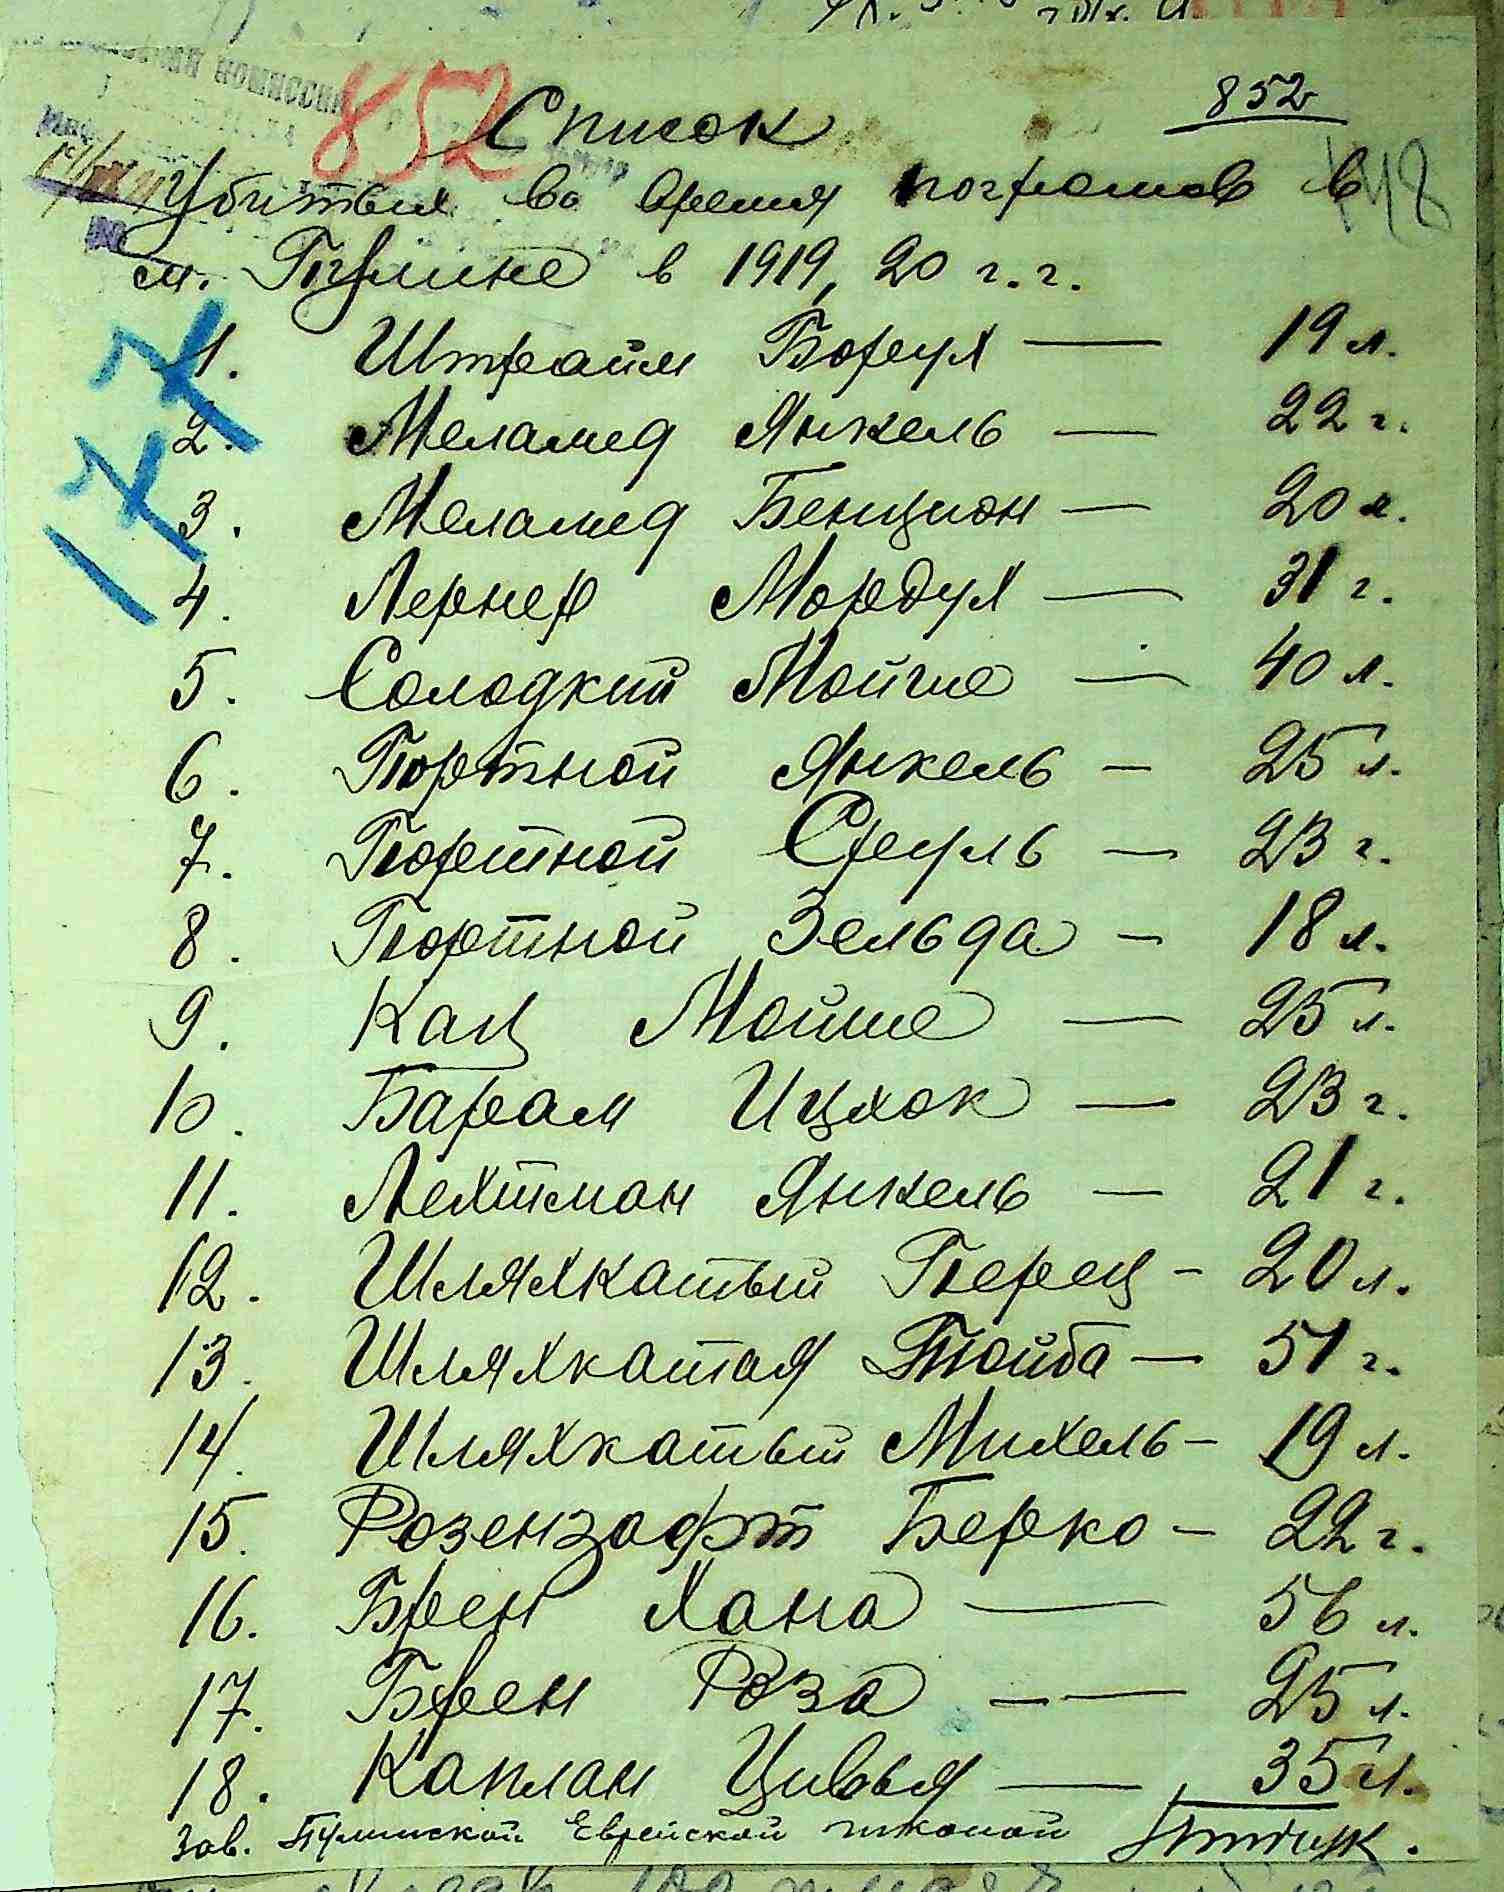 комиссии
852
852
Список
148
Убитых во время погромов в
м. Пулине в 1919, 20 г.г.
177
1. Штрайм Борух — 19 л.
2. Меламед Янкель — 22 г.
3. Меламед Бенцион — 20 л.
4. Лернер Мордух — 31 г.
5. Солодкий Мойше — 40 л.
6. Портной Янкель — 25 л.
7. Портной Сруль — 23 г.
8. Портной Зельда — 18 л.
9. Кац Мойше — 25 л.
10. Барам Ицхок — 23 г.
11. Лехтман Янкель — 21 г.
12. Шляхкатый Перец - 20 л.
13. Шляхкатая Тойба — 51 г.
14. Шляхкатый Михель - 19 л.
15. Розензафт Берко - 22 г.
16. Брен Хана — 56 л.
17. Брен Роза — — 25 л.
18. Каплан Цивья — 35 л.
Зав. Пулинской Еврейской школой